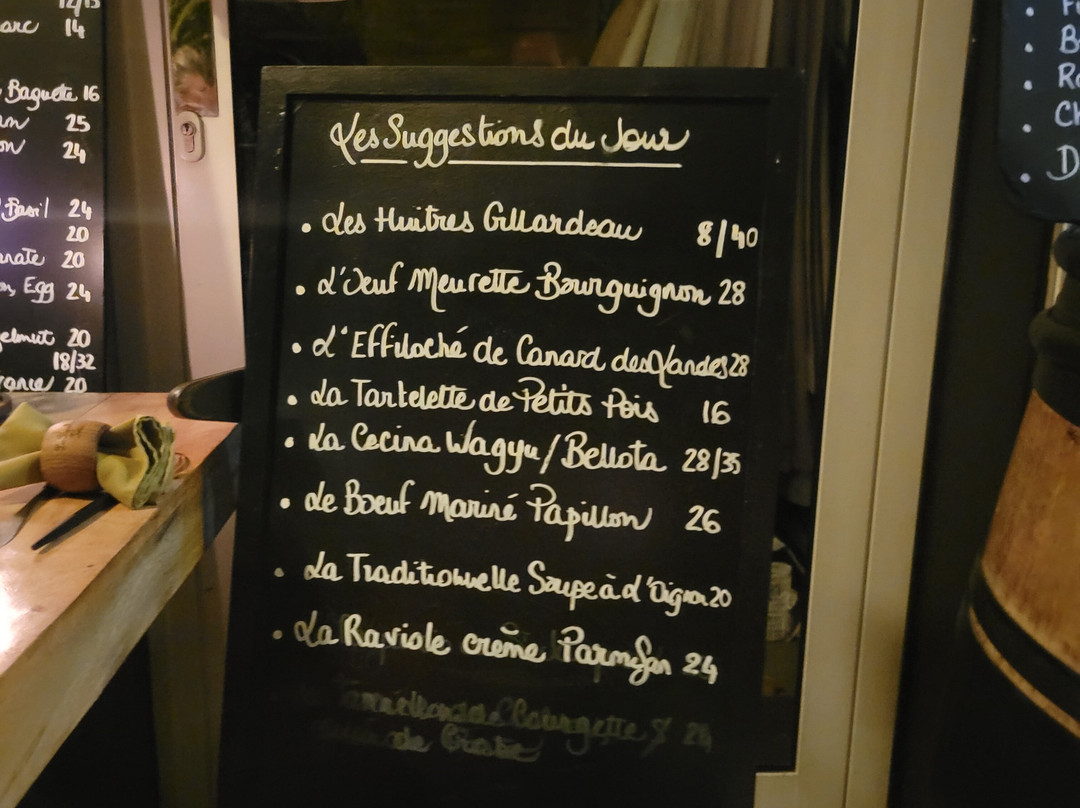 12/15
14
Baguette 16
25
24
Basil 24
20
20
Egg 24
20
18/32
20
Les Suggestions du Jour
• Les Huîtres Gillardeau 8/40
• L'Oeuf Meurette Bourguignon 28
• L'Effiloché de Canard des Landes 28
• La Tartelette de Petits Pois 16
• La Cecina Wagyu/Bellota 28/35
• Le Boeuf Mariné Papillon 26
• La Traditionnelle Soupe à d'Oignon 20
• La Raviole crème Parmesan 24
Courgette & 24
de Crabe